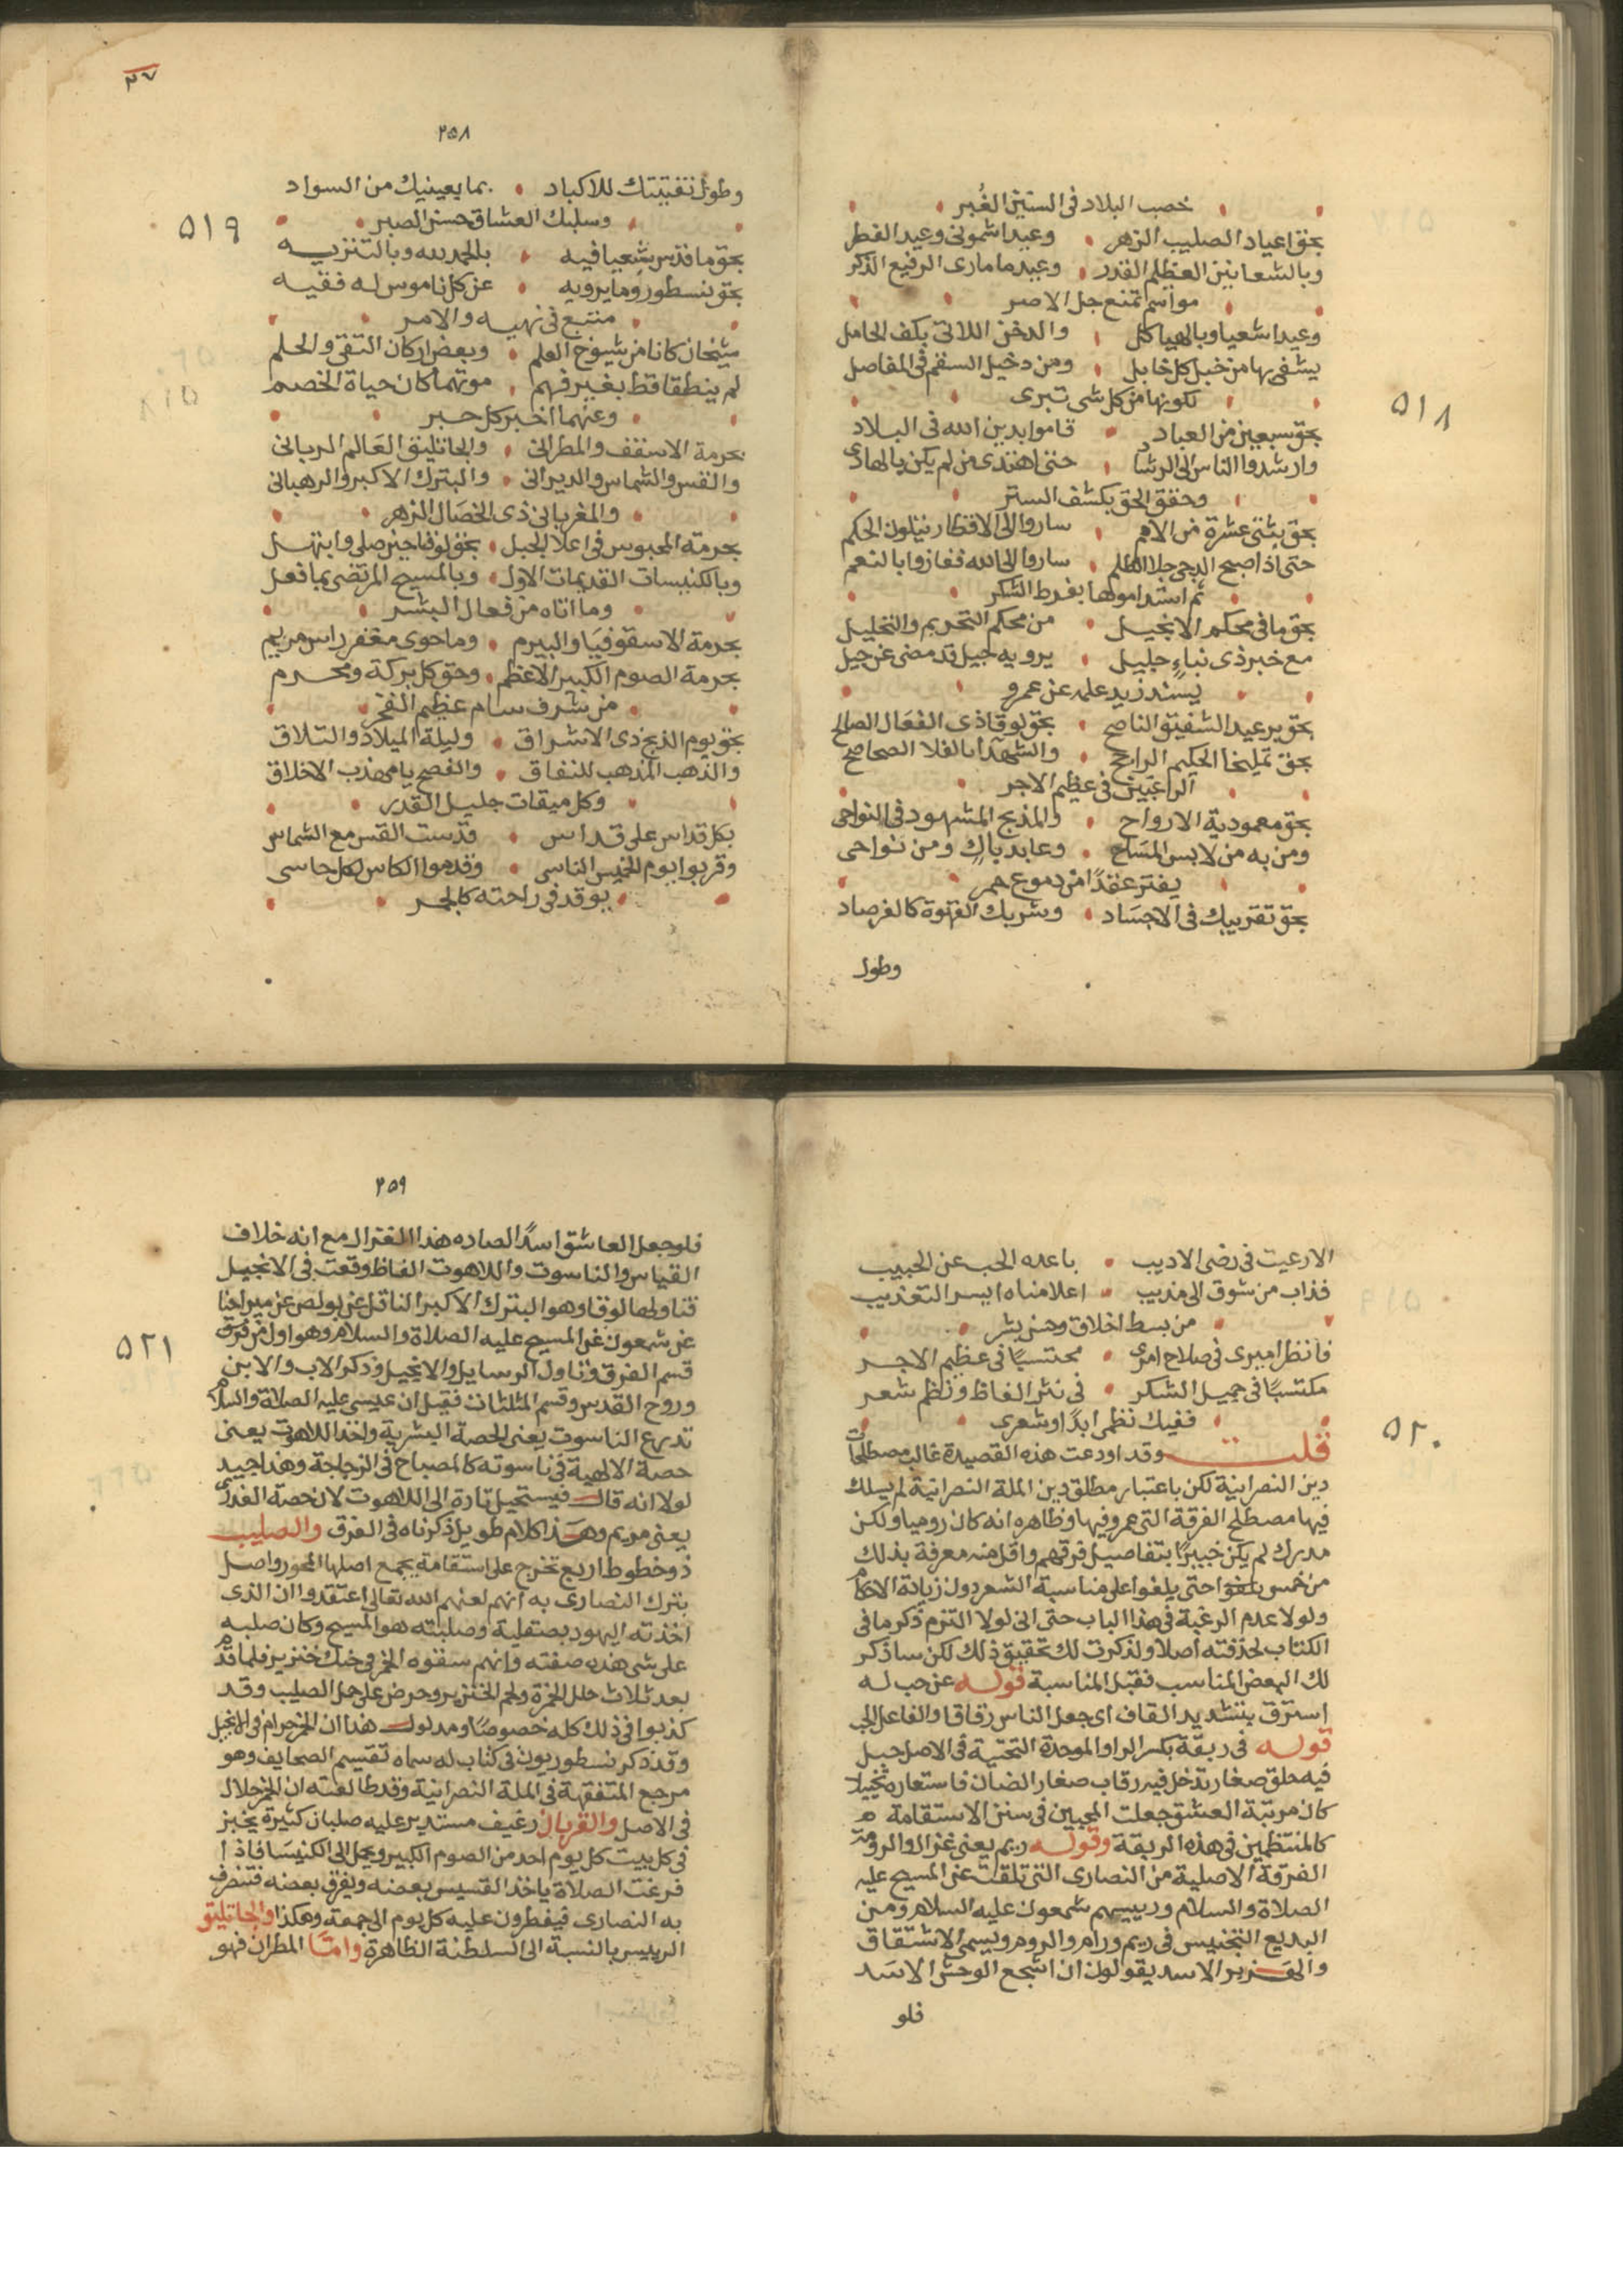 خصب البلاد فى السنين الغُبر
بحق اعياد الصليب الزهر • وعيد اشمونى وعيد الفطر
وبالشعانين العظيم القدر • وعيد ماماري الرفيع الذكر
مواسم تمنع حمل الاصر
وعيد اشعيا وبالهياكل • والدخن اللاتى بكف الحامل
يشفى بها من خبل كل خابل • ومن دخيل السقم فى المفاصل
لكونها من كل شى تبرى
٥١٨
بحق سبعين من العباد • قاموا بدين الله فى البلاد
وارشدوا الناس الى الرشاد • حتى اهتدى من لم يكن بالهادى
وحقق الحق بكشف الستر
بحق ثنتى عشرة من الامم • ساروا الى الاقطار يتلون الحكم
حتى اذا صبح الدجى جلا الظلم • ساروا الى الله ففازوا بالنعم
ثم استداموها بفرط الشكر
بحق ما فى محكم الانجيل • من محكم التحريم والتحليل
مع خبر ذى نباء جليل • يرويه جيل قد مضى عن جيل
يسند زيد علمه عن عمرو
بحق مرعيد الشفيق الناصح • بحق لوقا ذى الفعال الصالح
بحق تمليخا الحكيم الراجح • والشهدا بالفلا الصحاصح
الراغبين فى عظيم الاجر
بحق معمودية الارواح • والمذبح المشهود فى النواحى
ومن به من لابس المساح • وعابد باك ومن نواحى
يفتر عقدًا من دموع حمر
بحق تقريبك فى الاجساد • وشربك القهوة كالفرصاد
وطول
٣٧
٢٥٨
وطول تفتيتك للاكباد • بما بعينيك من السواد
وسلبك العشاق حسن الصبر
٥١٩
بحق ما قدس شعيا فيه • بالحمد لله وبالتنزيه
بحق نسطور وما يرويه • عن كل ناموس له فقيه
متبع فى نهيه والامر
شيخان كانا من شيوخ العلم • وبعض اركان التقى والحلم
لم ينطقا قط بغير فهم • موتهما كان حياة الخصم
وعنهما اخبر كل حبر
بحرمة الاسقف والمطرانى • والجاثليق العالم الربانى
والقس والشماس والديرانى • والبترك الاكبر والرهبانى
والمقربانى ذى الخصال الزهر
بحرمة المحبوس فى اعلا الجبل • بحق لوقا حين صلى وابتهل
وبالكنيسات القديمات الاول • وبالمسيح المرتضى بما فعل
وما اتاه من فعال البشر
بحرمة الاسقوفيا والبيرم • وما حوى مغفر راس مريم
بحرمة الصوم الكبير الاعظم • وحق كل بركة ومحرم
من شرف سام عظيم الفخر
بحق يوم الذبح ذى الاشراق • وليلة الميلاد والتلاق
والذهب المذهب للنفاق • والفصح يا مهذب الاخلاق
وكل ميقات جليل القدر
بكل قداس على قداس • قدست القس مع الشماس
وقربوا يوم الخميس الناسى • وقدموا الكاس لكل حاسى
يوقد فى راحته كالجمر
الا رعيت فى رضى الاديب • باعده الحب عن الحبيب
فذاب من شوق الى مذيب • اعلا مناه ايسر التعذيب
من بسط اخلاق وحسن بشر
فانظر اميرى فى صلاح امرى • محتسبًا فى عظيم الاجر
مكتسبًا فى جميل الشكر • فى نثر الفاظ ونظم شعر
ففيك نظمى ابدًا وشعرى
٥٢٠
قلت وقد اودعت هذه القصيدة غالب مصطلحات
دين النصرانية لكن باعتبار مطلق دين الملة النصرانية لم يسلك
فيها مصطلح الفرقة التى عمرو فيها وظاهره انه كان روميا ولكن
مدرك لم يكن خبيرًا بتفاصيل فرقهم واقل منه معرفة بذلك
من خمس بلغوا حتى يلغوا على مناسبة الشعر دون زيادة الاحكام
ولولا عدم الرغبة فى هذا الباب حتى انى لولا التزم ذكر ما فى
الكتاب لحذفته اصلا ولذكرت لك تحقيق ذلك لكن ساذكر
لك البعض المناسب فقبل المناسبة قوله عن حب له
استرق بتشديد القاف اى جعل الناس رقاقا والفاعل الحب
قوله فى ربقة بكسر الرا والموحدة التحتية فى الاصل حبل
فيه حلق صغار تدخل فيه رقاب صغار الضان فاستعاره تخييلا
كان مرتبة العشق جعلت المحبين فى سنن الاستقامة
كالمنتظمين فى هذه الربقة وقوله ريم يعنى غزال والروم
الفرقة الاصلية من النصارى التى تلقت عن المسيح عليه
الصلاة والسلام ورييسهم شمعون عليه السلام ومن
البديع التجنيس فى ريم ورام والروم ويسمى الاشتقاق
والهزبر الاسد يقولون ان اشجع الوحش الاسد
فلو
٢٥٩
فلو جعل العاشق اسدًا لصاده هذا الغزال مع انه خلاف
القياس والناسوت واللاهوت الفاظ وقعت فى الانجيل
تناولها لوقا وهو البترك الاكبر الناقل عن بولص عن ميراحنا
عن شمعون عن المسيح عليه الصلاة والسلام وهو اول من فرق
٥٢١
قسم الفرق وتناول الرسايل والانجيل وذكر الاب والابن
وروح القدس وقسم المثلثات فقيل ان عيسى عليه الصلاة والسلام
تدرع الناسوت يعنى الحصة البشرية واخذ اللاهوت يعنى
حصة الالهية فى ناسوته كالمصباح فى الزجاجة وهذا جيد
لولا انه قال فيستحيل تارة الى اللاهوت لان حصة الغدرى
يعنى مريم وهذا كلام طويل ذكرناه فى الفرق والصليب
ذو خطوط اربع تخرج على استقامة يجمع اصلها المحور واصل
بترك النصارى به انهم لعنهم الله تعالى اعتقدوا ان الذى
اخذته اليهود بصقلية وصلبته هو المسيح وكان صلبه
على شى هذه صفته وانهم سقوه الخمر وحنك خنزير فلما قام
بعد ثلاث حلل الخمرة ولحم الخنزير وحرض على حمل الصليب وقد
كذبوا فى ذلك كله خصوصًا ومدلول هذا ان الخمر حرام فى الانجيل
وقد ذكر نسطوريون فى كتاب له سماه تقسيم الصحايف وهو
مرجع المتفقهة فى الملة النصرانية وقد طالعته ان الخمر حلال
فى الاصل والقربان رغيف مستدير عليه صلبان كثيرة يخبز
فى كل بيت كل يوم احد من الصوم الكبير ويحمل الى الكنيسا فاذا
فرغت الصلاة ياخذ القسيس بعضه ويفرق بعضه فتنصرف
به النصارى فيفطرون عليه كل يوم الى جمعة وهكذا والجاثليق
الرييس بالنسبة الى السلطنة الظاهرة وامّا المطران فهو